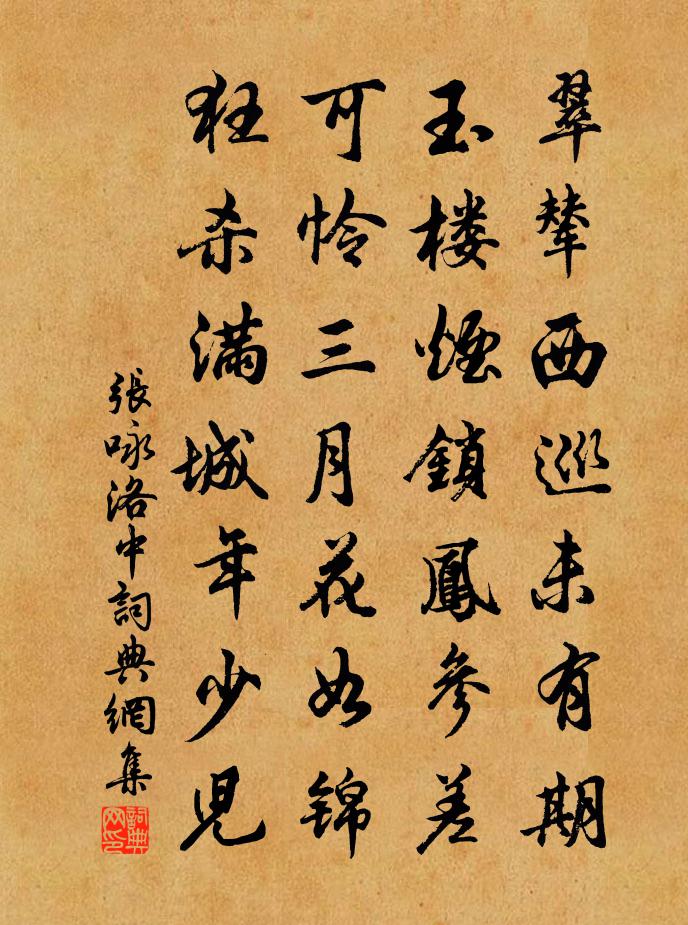 翠輦西巡未有期
玉楼煙鎖鳳參差
可怜三月花如錦
狂杀滿城年少児
張咏洛中詞典網集
詞典网印